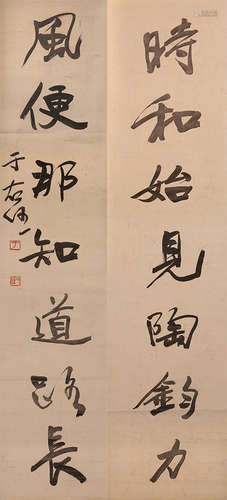 時和始見陶鈞力
風便那知道路長
于右任